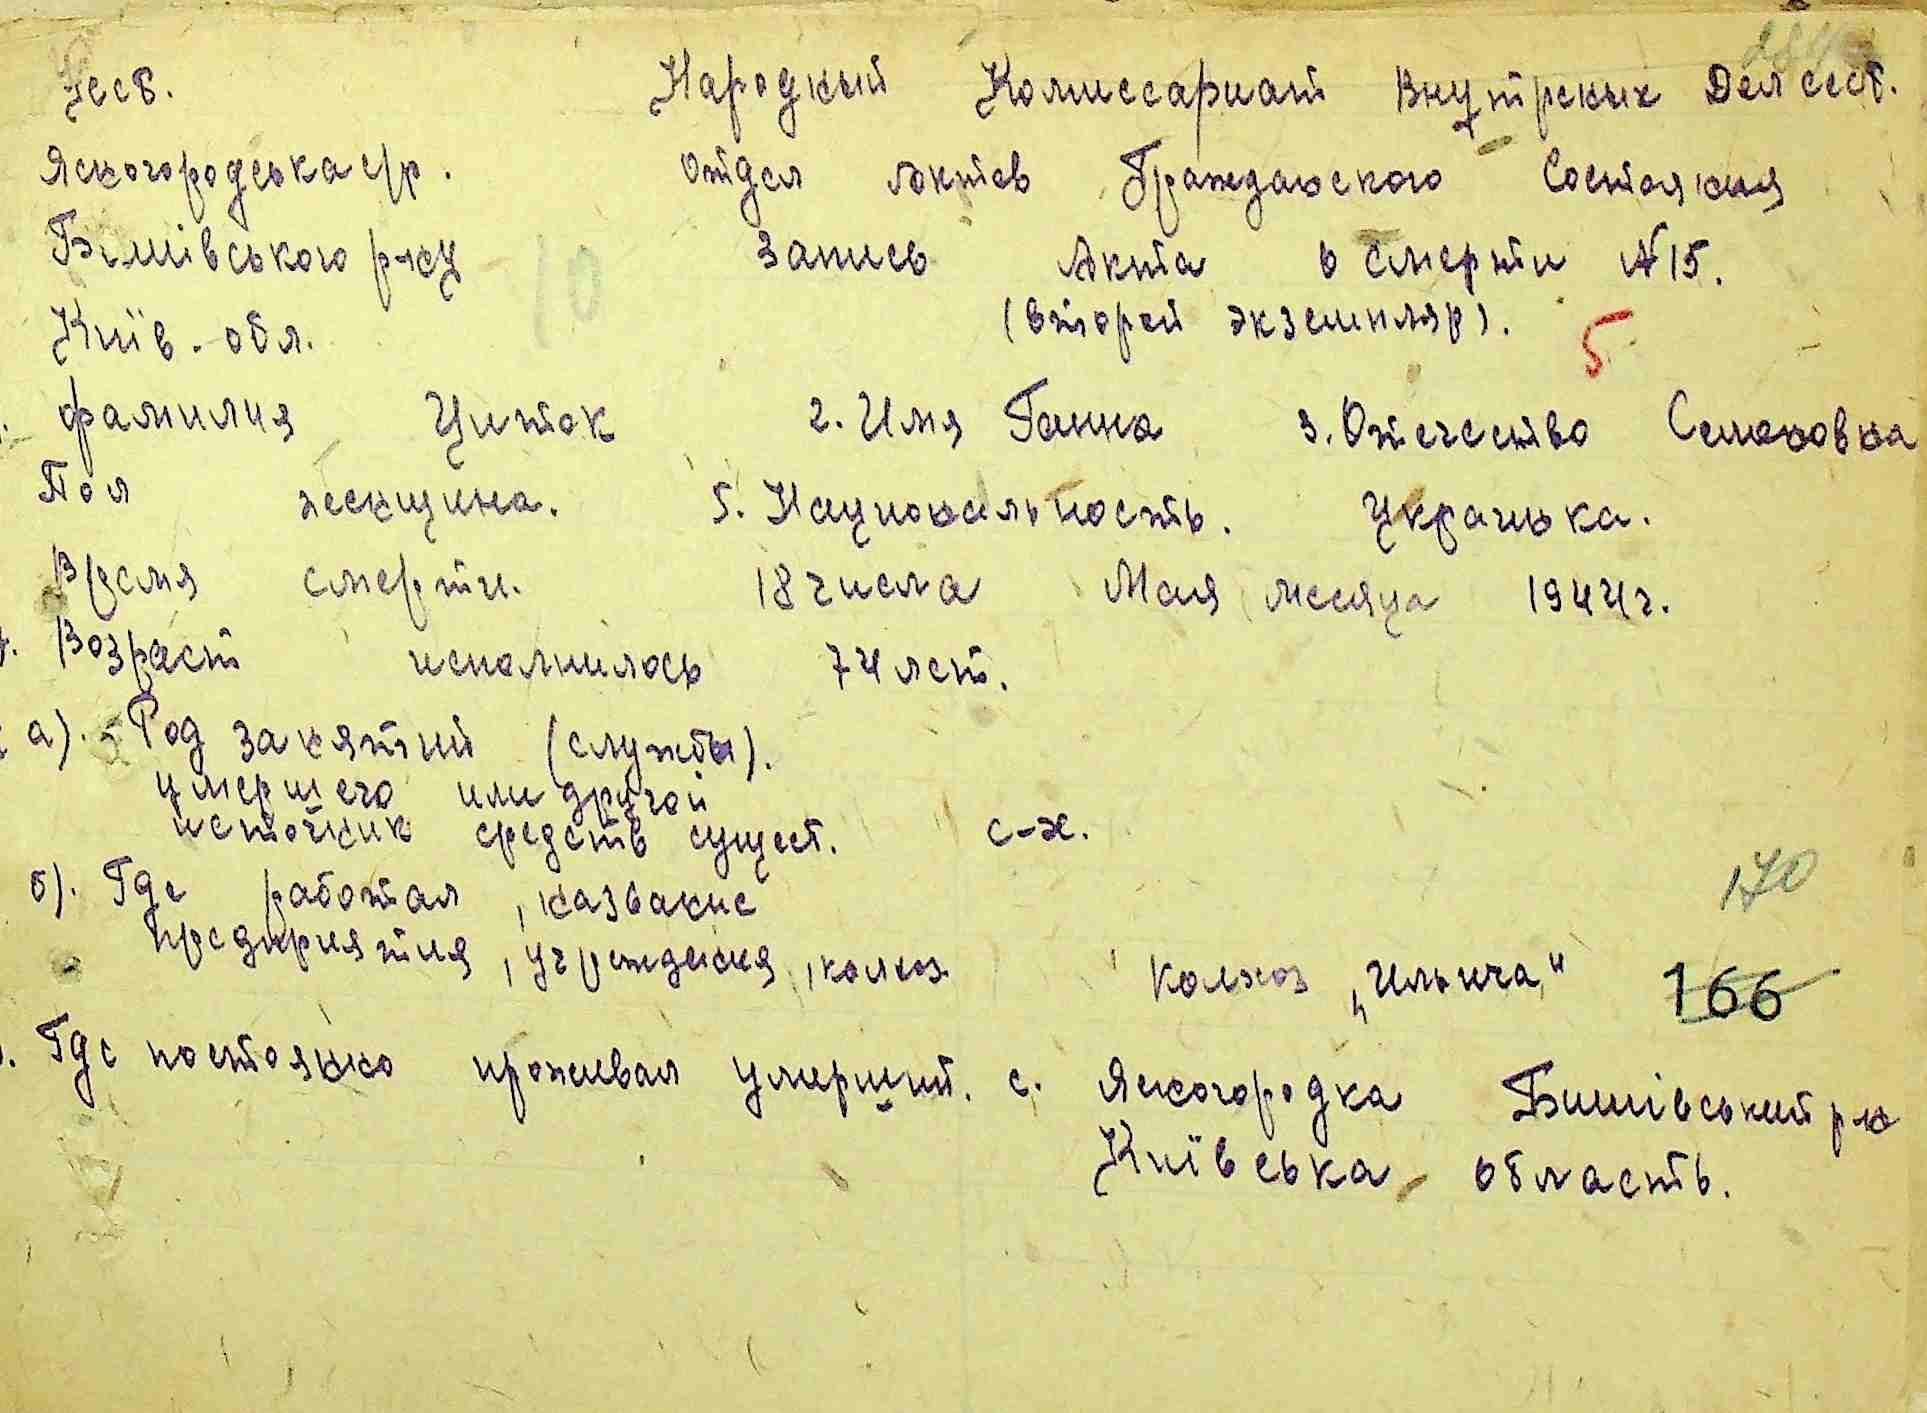 Уссб. Народный Комиссариат Внутреных Дел ссст.
Ясногородська с/р. Отдел Актов Гражданского Состояния
Бишівського р-ну Запись Акта о смерти №15.
Київ. обл. (второй экземпляр). 5
10
Фамилия Циток 2. Имя Ганна 3. Отечество Семеновна
Пол женщина. 5. Национальность. Українька.
Время смерти. 18 числа Мая месяца 1944г.
Возраст исполнилось 74 лет.
а). Род занятий (службы).
умершего или другой
источник средств сущест. с-х.
б). Где работал, название 170
предприятия, учреждения, колхоз. Колхоз „Ильича" 166
Где постоянно проживал умерший. с. Ясногородка Бишівський р-н
Київська область.